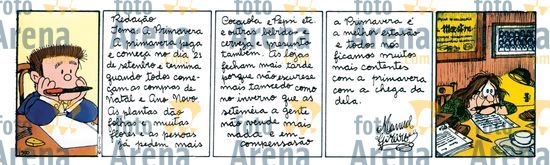 Redação
Tema: A Primavera
A primavera pega
e começa no dia 21
de setembro e termina
quando todos come-
çam as compras de
Natal e Ano Novo.
As plantas dão
folhas e muitas
flores e as pessoas
já pedem mais
Cocacola e Pepsi etc.
e outros
cerveja e presunto
também. As lojas
fecham mais tarde
porque não escurese
mais tam cedo como
no inverno que as
sete meia a gente
não vende mais
nada e em
compensação
a Primavera é
a melhor estação
e todos nós
ficamos muitos
mais contentes
com a primavera
com a chegada
dela.
Manuel
Maestra
foto
Arena